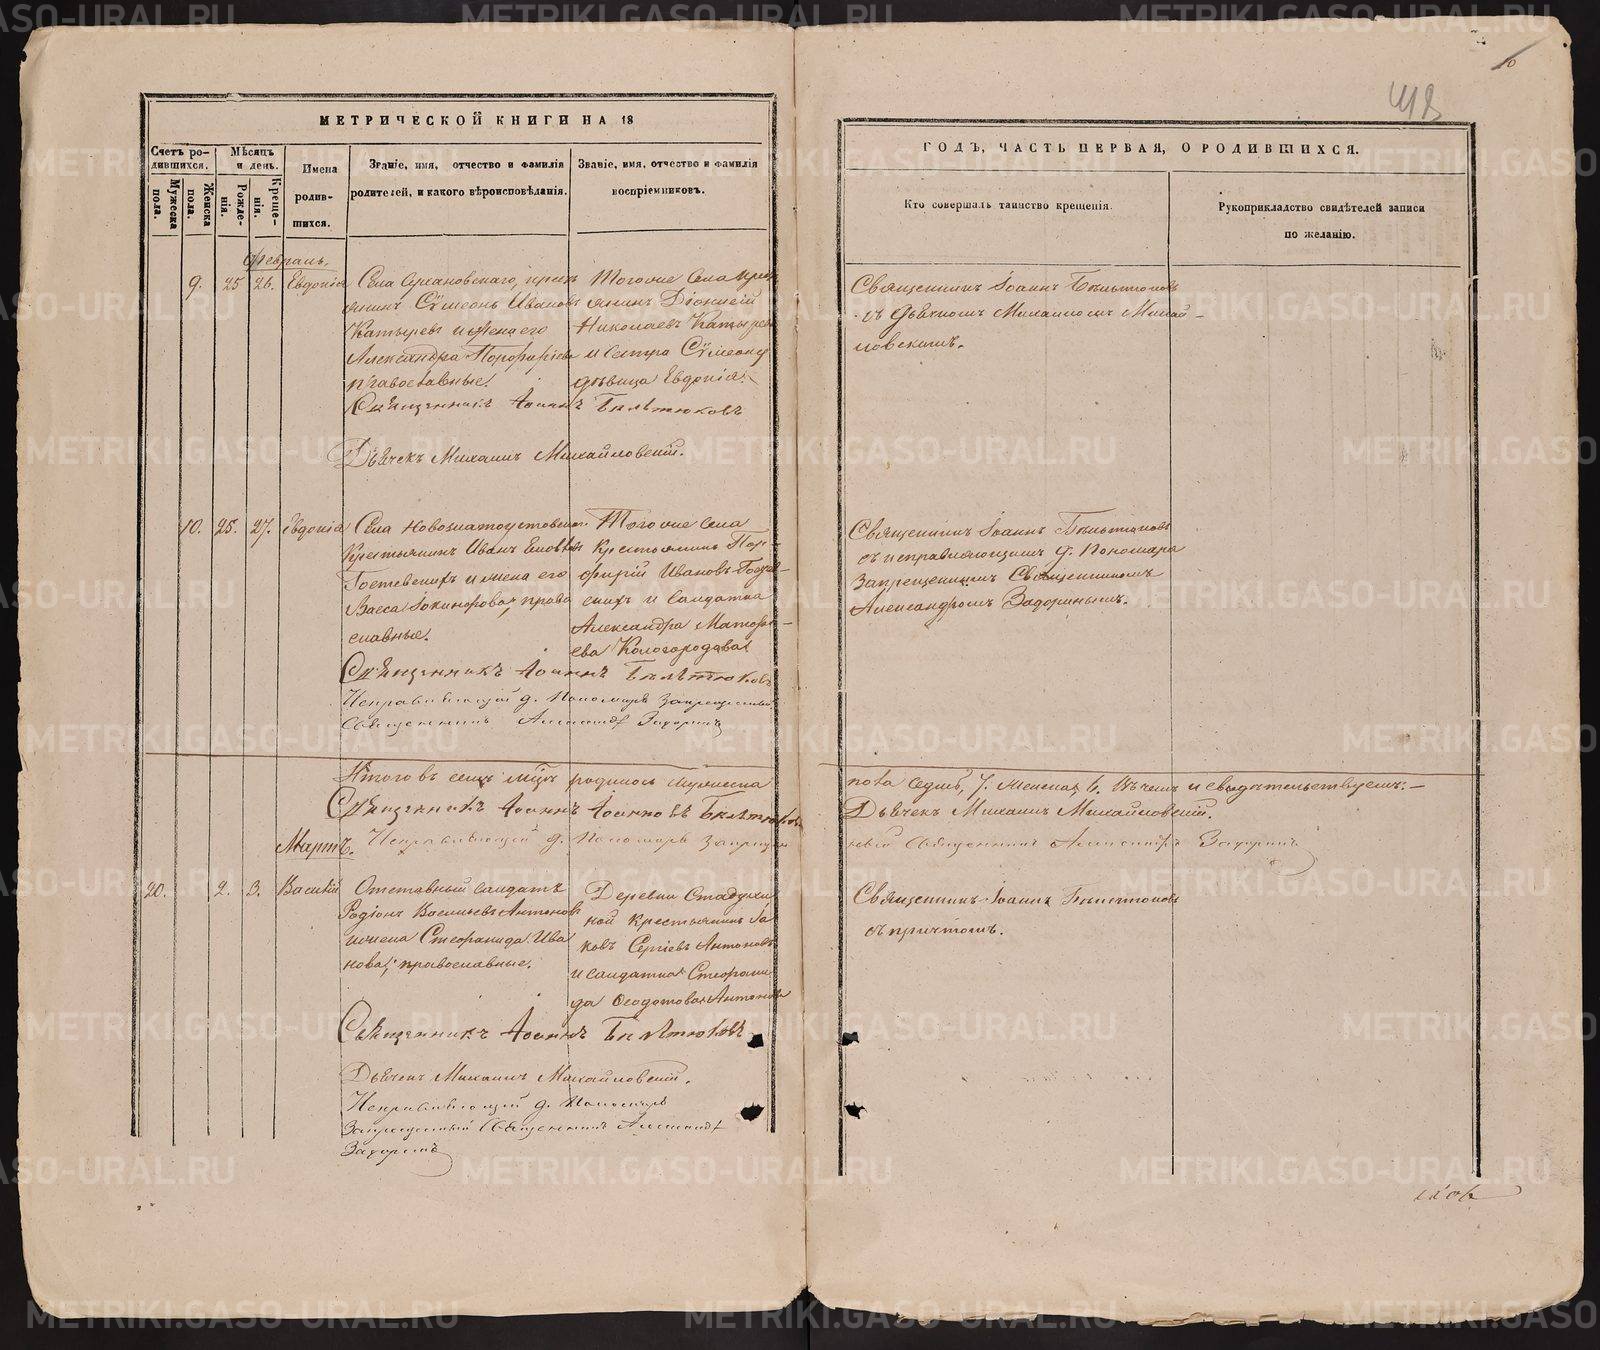 МЕТРИЧЕСКОЙ КНИГИ НА 18
Счетъ родившихся.
Мужеска пола.
Женска пола.
Мѣсяцъ и день.
Рожденія.
Крещенія.
Имена родившихся.
Званіе, имя, отчество и фамилія родителей, и какого вѣроисповѣданія.
Званіе, имя, отчество и фамилія воспріемниковъ.
ГОДЪ, ЧАСТЬ ПЕРВАЯ, О РОДИВШИХСЯ.
Кто совершалъ таинство крещенія.
Рукоприкладство свидѣтелей записи по желанію.
Февраль.
9. 25 26. Евдокія
Села крестьянинъ Сѵмеонъ Ивановъ
Катыревъ и жена его
Александра
православные.
Тогоже Села крестьянинъ Діонисій
Николаевъ Катыревъ
и сестра Сѵмеона
дѣвица Евдокія.
Священникъ Іоаннъ Билѣтюковъ
Дьячекъ Михаилъ Михайловскій.
Священникъ Іоаннъ Билѣтюковъ
съ Дьячкомъ Михаиломъ Михайловскимъ.
10. 25. 27. Евдокія
Села Новозлатоустовскаго
Крестьянинъ Иванъ
и жена его
Васса православные.
Тогоже Села
Крестьянинъ Порфирій Ивановъ
и Солдатка
Александра
Священникъ Іоаннъ Билѣтюковъ
Исправляющій д. Пономаря Запрещенный
Священникъ Александръ Задоринъ
Священникъ Іоаннъ Билѣтюковъ
съ исправляющимъ д. Пономаря
Запрещеннымъ Священникомъ
Александромъ Задоринымъ.
Итого въ семъ м-цѣ родилось мужеска
пола седмь, 7. женска, 6. въ чемъ и свидѣтельствуемъ:
Священникъ Іоаннъ Іоанновъ Билѣтюковъ
Дьячекъ Михаилъ Михайловскій.
Исправляющій д. Пономаря Запрещенный Священникъ Александръ Задоринъ
Мартъ.
20. 2. 3. Василій
Отставный солдатъ
Родіонъ Васильевъ Антоновъ
и жена Стефанида Иванова, православные.
Деревни
Крестьянинъ Іаковъ Сергіевъ Антоновъ
и солдатка Стефанида Ѳеодотова Антонова
Священникъ Іоаннъ Билѣтюковъ
Дьячекъ Михаилъ Михайловскій.
Исправляющій д. Пономаря
Запрещенный Священникъ Александръ
Задоринъ
Священникъ Іоаннъ Билѣтюковъ
съ причтомъ.
METRIKI.GASO-URAL.RU